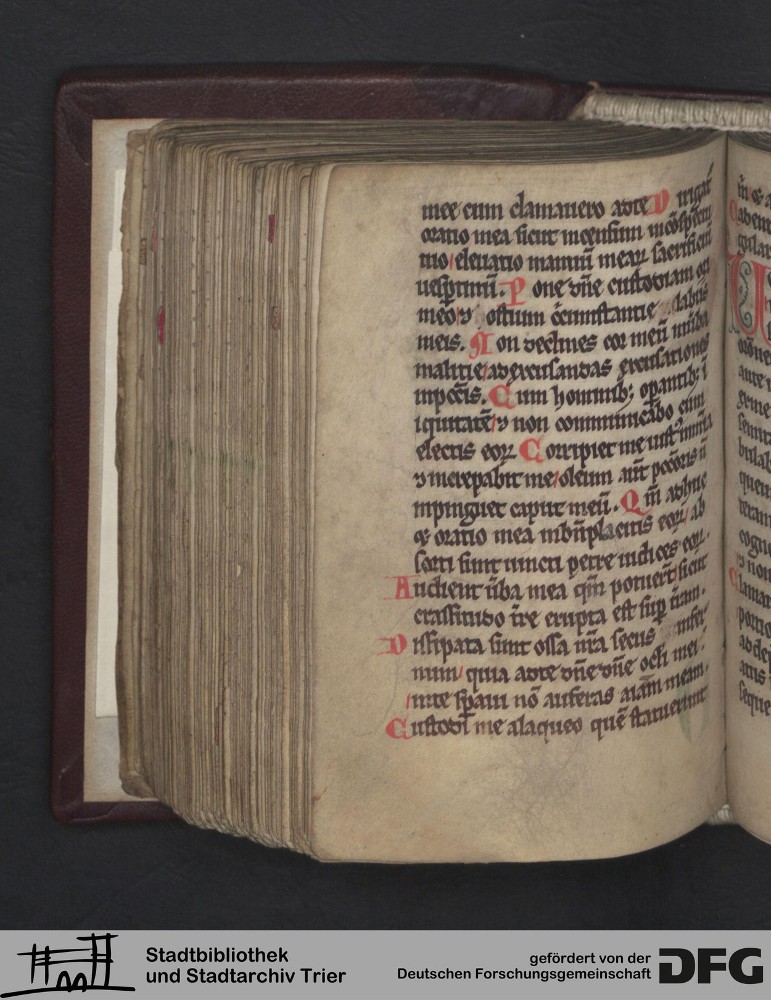 mee cum clamauero adte D irigat̄
oratio mea sicut incensum in ɔspectu
tuo eleuatio manuū mearꝝ sacrificiū
uesptinū. P one dn̄e custodiam ori
meo ⁊ ostium c̄cumstantie labiis
meis. N on declines cor meū in uba
malitie ad excusandas excusationes
in pcc̄is. C um hominib; opantib; ī
iquitatē ⁊ non communicabo cum
electis eoꝝ C orripiet me iust̄ in mīa
⁊ increpabit me oleum aut̄ pccōris ñ
inpinguet caput meū. Q m̄ adhuc
⁊ oratio mea in bn̄placitis eoꝝ ab
sorti sunt iuncti petre iudices eoꝝ.
A udient ūba mea qm̄ potuert̄ sicut
crassitudo tr̄e erupta est sup tr̄am.
D issipata sunt ossa nr̄a secus infer
num quia adte dn̄e dn̄e oc̄li mei
inte spaui nō auferas aīam meam.
C ustodi me alaqueo quē statuerunt
Stadtbibliothek
und Stadtarchiv Trier
gefördert von der
Deutschen Forschungsgemeinschaft
DFG